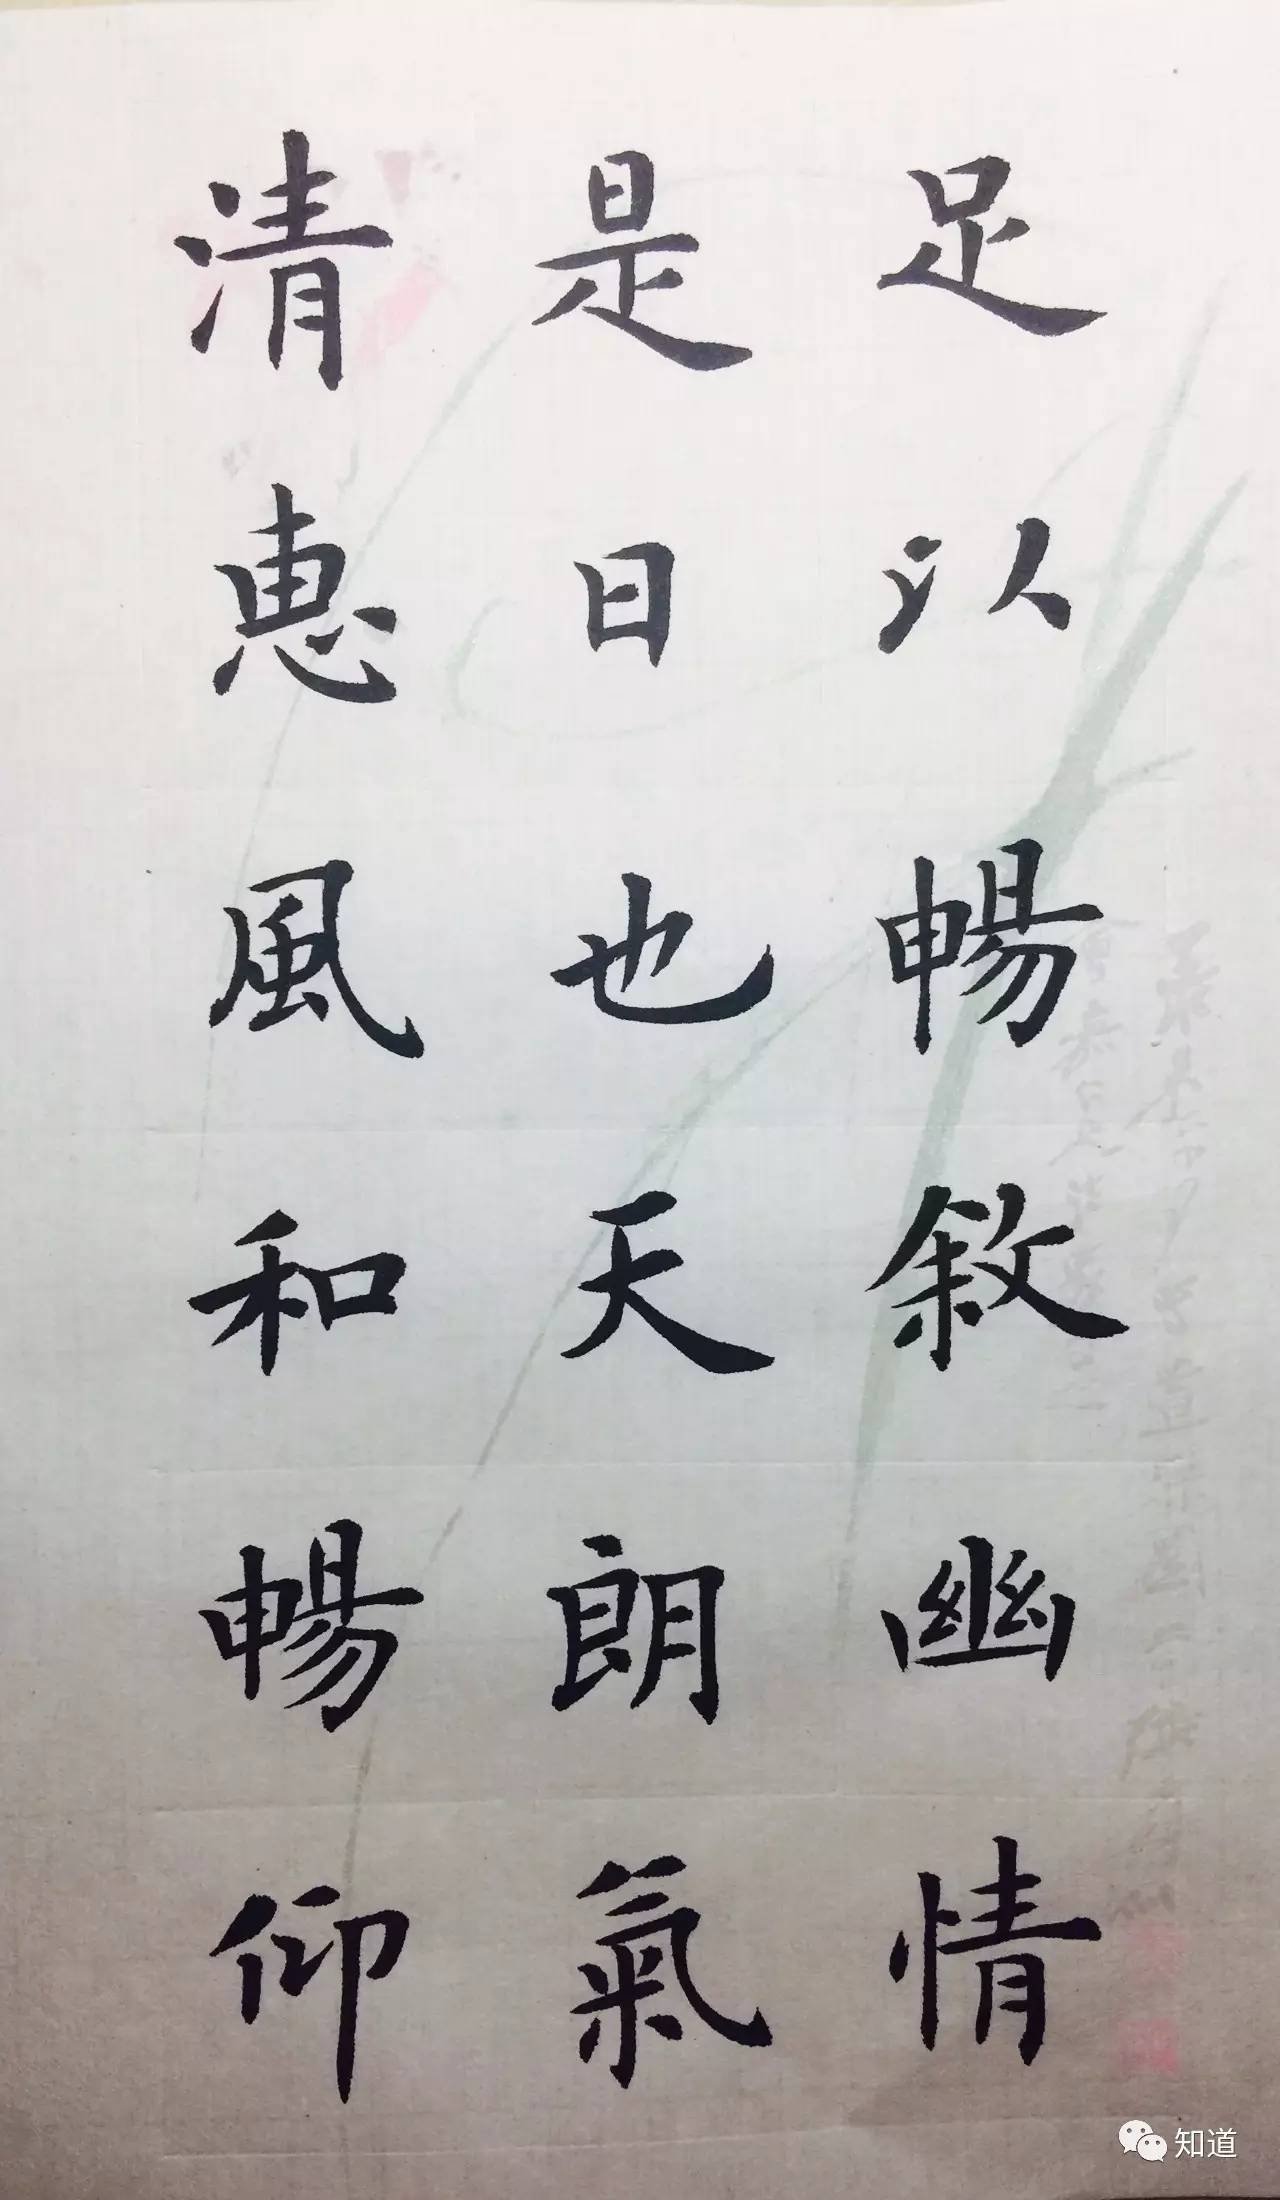 足以暢敘幽情
是日也天朗氣
清惠風和暢仰
知道